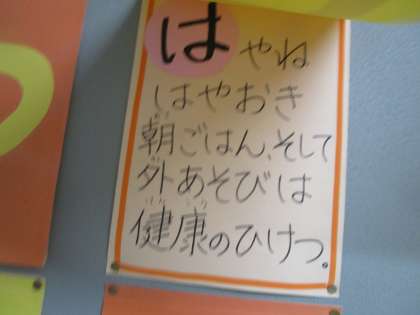 はやね
はやおき
朝ごはん、そして
外あそびは
健康のひけつ。